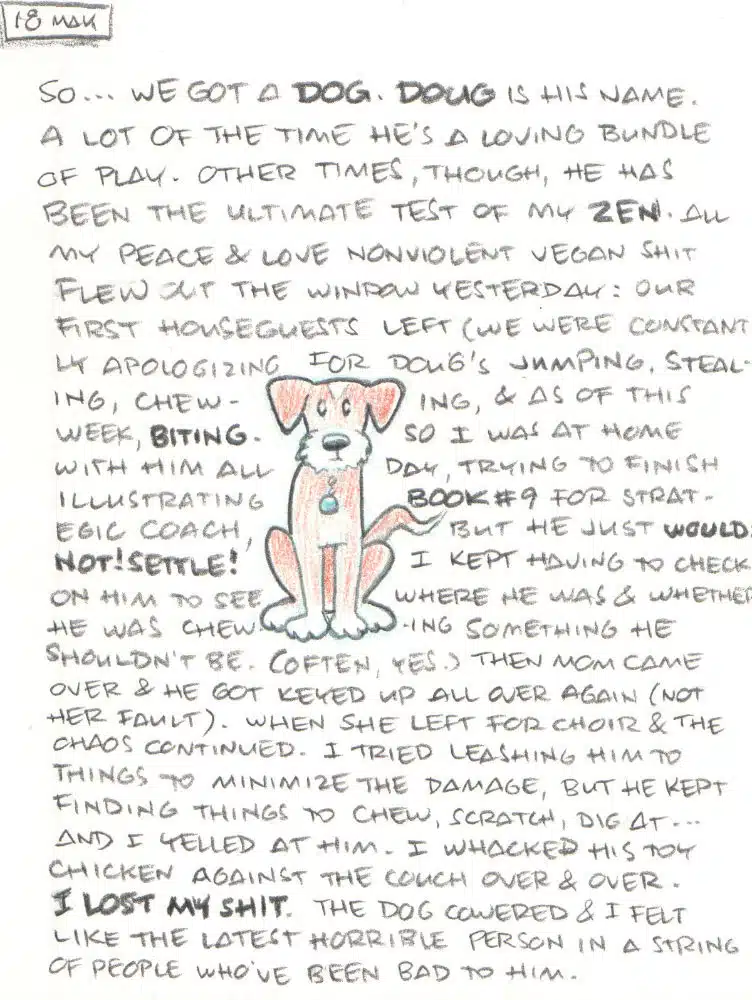 18 MAR
SO... WE GOT A DOG. DOUG IS HIS NAME.
A LOT OF THE TIME HE'S A LOVING BUNDLE
OF PLAY. OTHER TIMES, THOUGH, HE HAS
BEEN THE ULTIMATE TEST OF MY ZEN. ALL
MY PEACE & LOVE NONVIOLENT VEGAN SHIT
FLEW OUT THE WINDOW YESTERDAY: OUR
FIRST HOUSEGUESTS LEFT (WE WERE CONSTANT
LY APOLOGIZING FOR DOUG'S JUMPING, STEAL-
ING, CHEW-ING, & AS OF THIS
WEEK, BITING. SO I WAS AT HOME
WITH HIM ALL DAY, TRYING TO FINISH
ILLUSTRATING BOOK #9 FOR STRAT-
EGIC COACH, BUT HE JUST WOULD.
NOT! SETTLE! I KEPT HAVING TO CHECK
ON HIM TO SEE WHERE HE WAS & WHETHER
HE WAS CHEW-ING SOMETHING HE
SHOULDN'T BE. (OFTEN, YES.) THEN MOM CAME
OVER & HE GOT KEYED UP ALL OVER AGAIN (NOT
HER FAULT). WHEN SHE LEFT FOR CHOIR & THE
CHAOS CONTINUED. I TRIED LEASHING HIM TO
THINGS TO MINIMIZE THE DAMAGE, BUT HE KEPT
FINDING THINGS TO CHEW, SCRATCH, DIG AT...
AND I YELLED AT HIM. I WHACKED HIS TOY
CHICKEN AGAINST THE COUCH OVER & OVER.
I LOST MY SHIT. THE DOG COWERED & I FELT
LIKE THE LATEST HORRIBLE PERSON IN A STRING
OF PEOPLE WHO'VE BEEN BAD TO HIM.